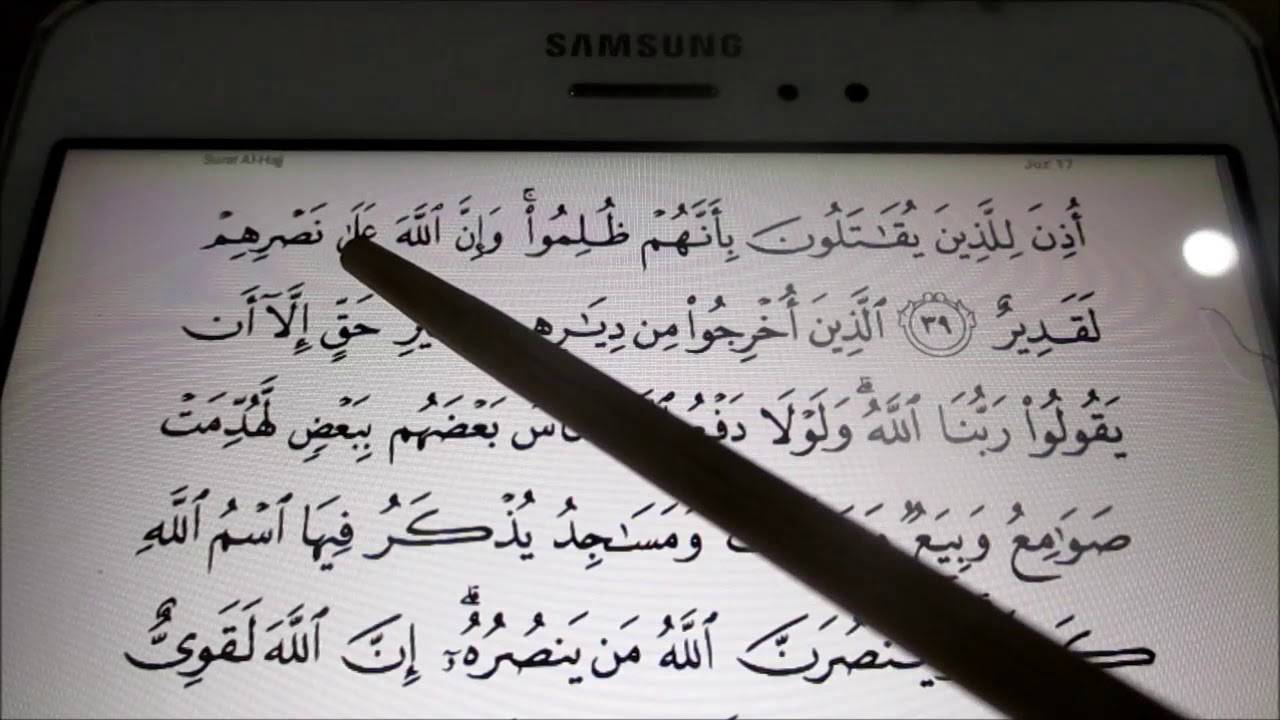 SAMSUNG
Surat Al-Hajj Juz 17
أُذِنَ لِلَّذِينَ يُقَٰتَلُونَ بِأَنَّهُمۡ ظُلِمُواْۚ وَإِنَّ ٱللَّهَ عَلَىٰ نَصۡرِهِمۡ
لَقَدِيرٌ ٣٩ ٱلَّذِينَ أُخۡرِجُواْ مِن دِيَٰرِهِم حَقٍّ إِلَّآ أَن
يَقُولُواْ رَبُّنَا ٱللَّهُۗ وَلَوۡلَا دَفۡعُ بَعۡضَهُم بِبَعۡضٖ لَّهُدِّمَتۡ
صَوَٰمِعُ وَبِيَعٞ وَمَسَٰجِدُ يُذۡكَرُ فِيهَا ٱسۡمُ ٱللَّهِ
ٱللَّهُ مَن يَنصُرُهُۥٓۗ إِنَّ ٱللَّهَ لَقَوِيٌّ